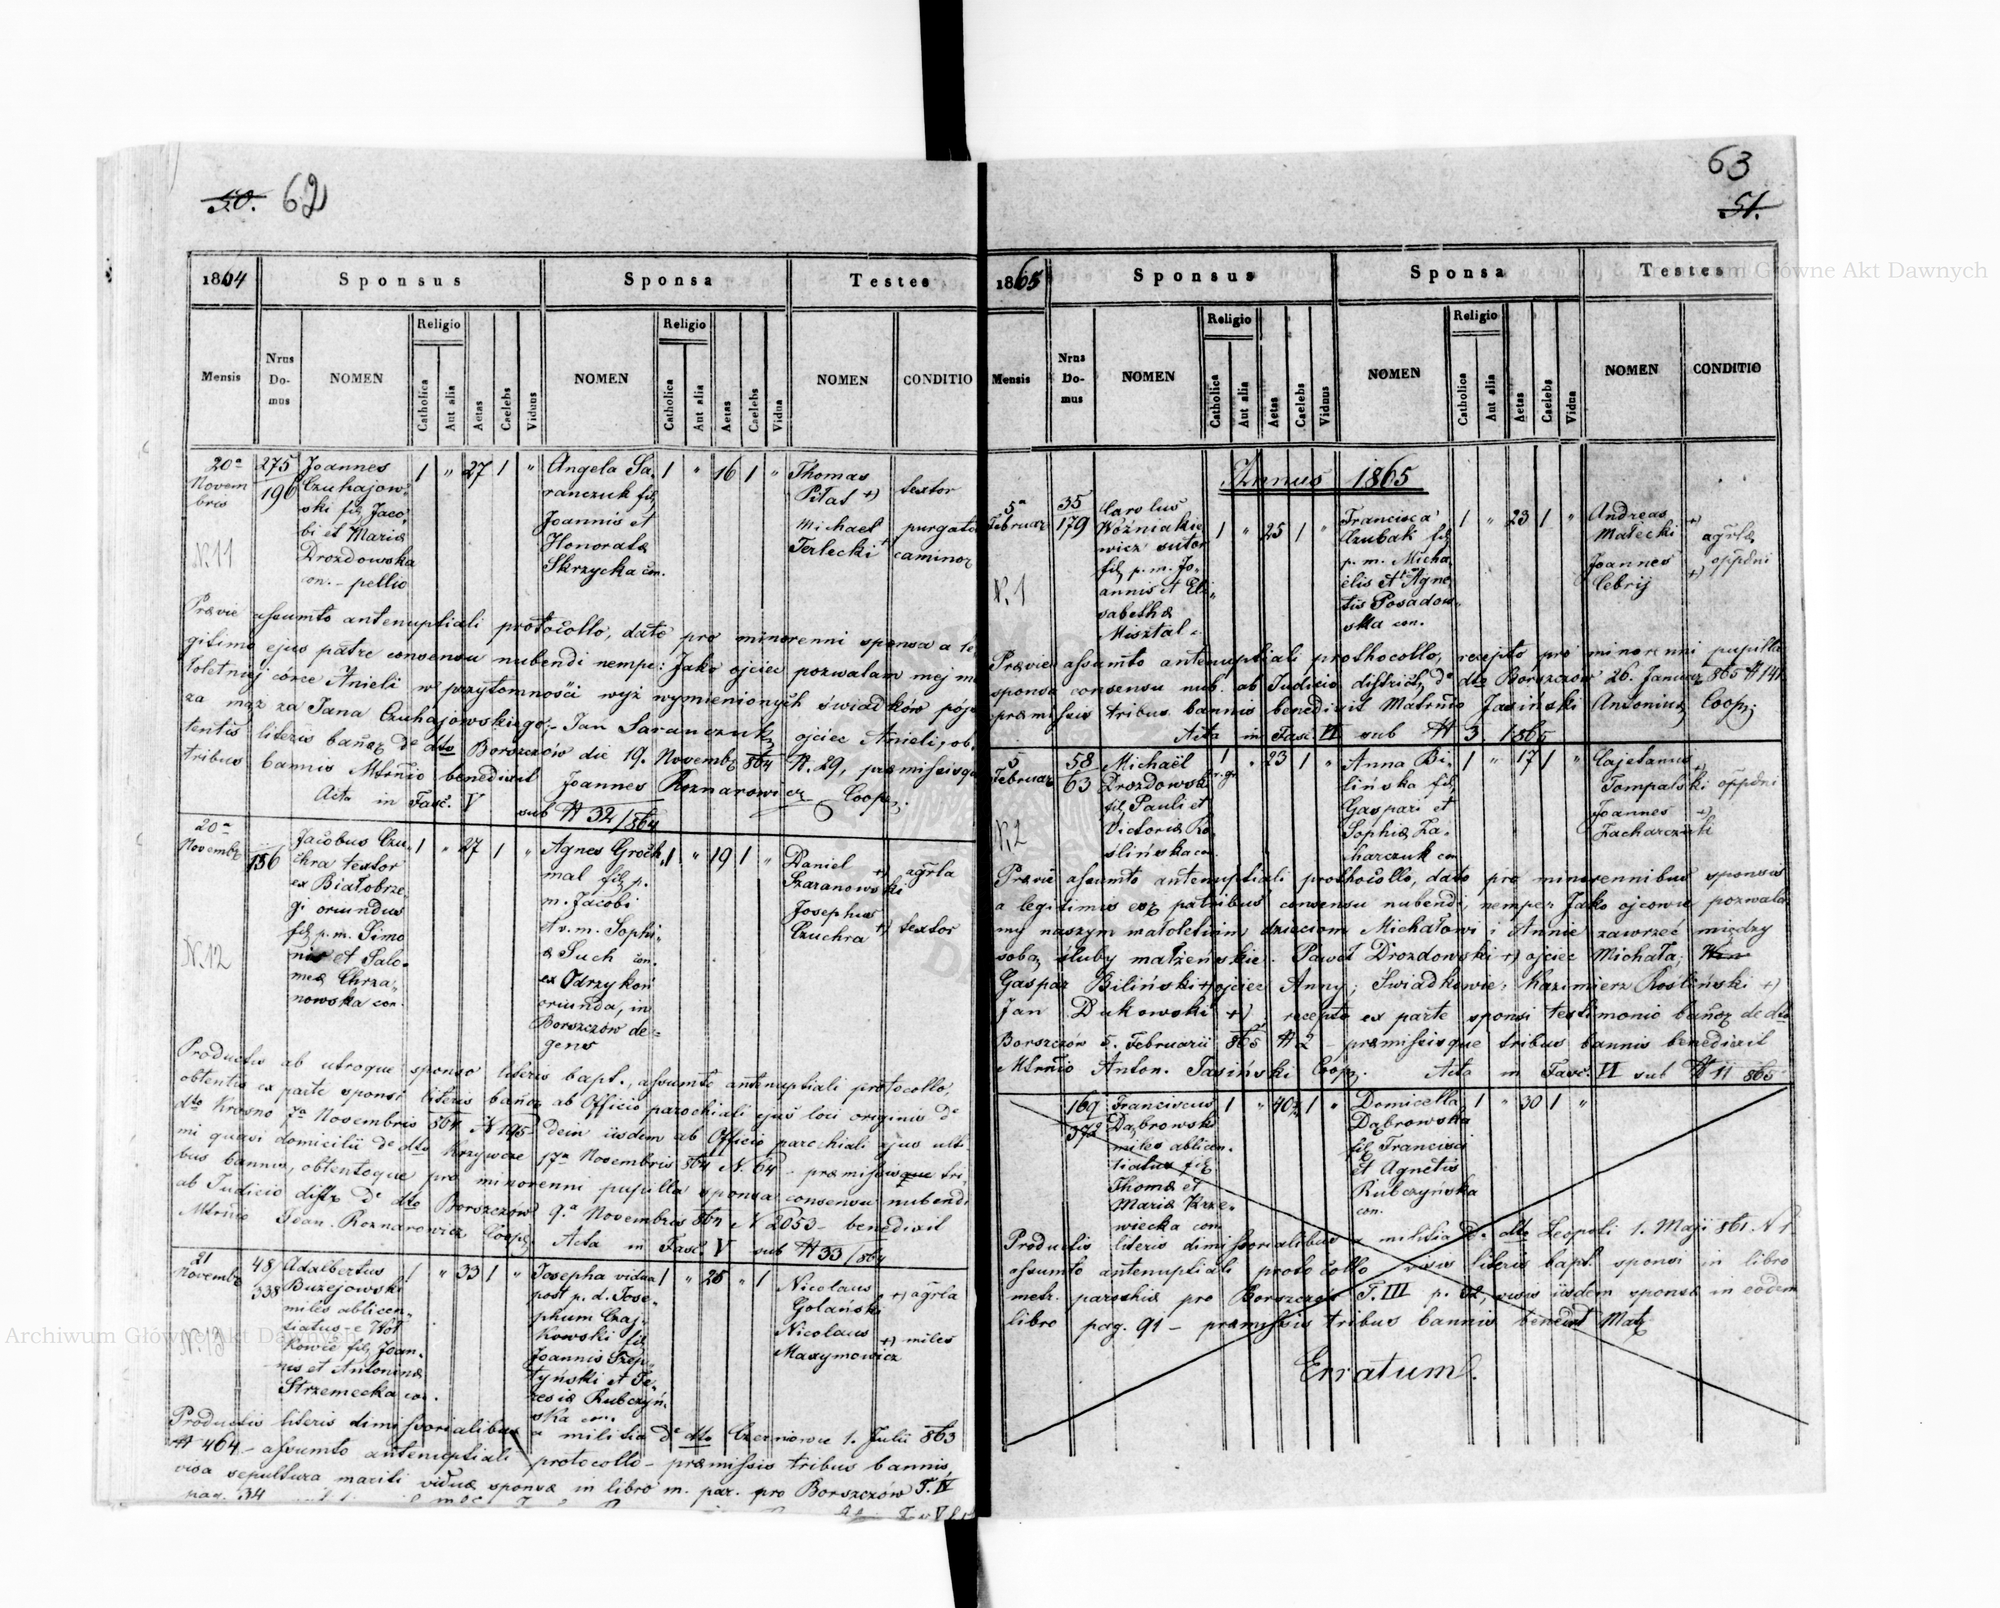 50. 62
1864 Sponsus Sponsa Testes
Mensis Nrus Domus NOMEN Religio Catholica Aut alia Aetas Caelebs Viduus NOMEN Religio Catholica Aut alia Aetas Caelebs Vidua NOMEN CONDITIO
20a Novembris
N. 11
275
196
Joannes
Czuhajow-
ski fil. Jaco-
bi et Maria
Drozdowska
con. - pellio
1 " 27 1 "
Angela Sa-
ranczuk fil.
Joannis et
Honorata
Skrzycka con.
1 " 16 1 "
Thomas
Pitat +)
textor
Michael
Terlecki +
purgato
caminor
Praevie assumto antenuptiali protocollo, dato pro minorenni sponsa a le-
gitimo ejus patre consensu nubendi nempe: Jako ojciec pozwalam mej ma
loletniej córce Anieli w przytomności wyż wymienionych świadków pójść
za mąż za Jana Czuhajowskiego;- Jan Saranczuk, ojciec Anieli, ob-
tentis literis bann. de dto Borszczów die 19. Novemb. 864 N. 29, praemissisque
tribus bannis Mtrnio benedixit Joannes Roznarowicz Coop.
Acta in Fasc. V sub N 32/864
20a
Novemb.
N. 12
156
Jacobus Czu-
chra textor
ex Białobrze-
gi oriundus
fil. p. m. Simo
nis et Salo-
mea Chrza-
nowska con.
1 " 27 1 "
Agnes Groch-
mal fil. p.
m. Jacobi
et v. m. Sophi-
a Such con.
ex Odrzykoń
oriunda, in
Borszczów de-
gens
1 " 19 1 "
Daniel +)
Szaranowski
agrla
Josephus
Czuchra +)
textor
Productis ab utroque sponso literis bapt., assumto antenuptiali protocollo,
obtentis ex parte sponsi literis bann. ab Officio parochiali ejus loci originis de
dto Krosno 7a Novembris 864 N 195 - dein iisdem ab Officio parochiali ejus ulti-
mi quasi domicilii de dto Krzywcze 17a Novembris 864 N. 64 - praemissisque tri-
bus bannis, obtentoque pro minorenni pupilla sponsa consensu nubendi
ab Judicio distr. de dto Borszczów 9.a Novembris 864 N 2053 - benedixit
Mtrnio Joan. Roznarowicz Coop. Acta in Fasc. V sub N 33/864
21
Novemb.
N. 13
48
338
Adalbertus
Buzejowski
miles ablicen-
tiatus e
kowie fil. Joan-
nis et Antonina
Strzemecka con.
1 " 33 1 "
Josepha vidua
post p. d. Jose-
phum Czaj-
kowski fil.
Joannis Szep-
tyński et Te-
resia Rubczyń-
ska con.
1 " 25 " 1
Nicolaus
Golański +)
agrla
Nicolaus
Maxymowicz +)
miles
Productis literis dimissorialibus a militia de dto Czerniowce 1. Julii 863
N 464 - assumto antenuptiali protocollo - praemissis tribus bannis,
visa sepultura mariti vidua sponsa in libro m. par. pro Borszczów T. IV
pag. 34
63
51.
1865 Sponsus Sponsa Testes
Mensis Nrus Domus NOMEN Religio Catholica Aut alia Aetas Caelebs Viduus NOMEN Religio Catholica Aut alia Aetas Caelebs Vidua NOMEN CONDITIO
Annus 1865
5a
Februar.
N. 1
35
179
Carolus
Woźniakie-
wicz sutor
fil. p. m. Jo-
annis et Eli-
sabetha
Misztal -
1 " 25 1 "
Francisca
Czubak fil.
p. m. Micha-
elis et Agne-
tis Posadow-
ska con.
1 " 23 1 "
Andreas
Małecki +
Joannes
Cebrij +)
agrla
oppdni
Praevie assumto antenuptiali prothocollo, recepto pro minorenni pupilla
sponsa consensu nub. ab Judicio district. de dto Borszczów 26. Januar. 865 N 141
praemissis tribus bannis benedixit Matrnio Jasiński Antonius Coop.
Acta in Fasc. VI sub N 3. 1865
5
Februar.
N. 2
58
63
Michaël
Drozdowski
fil. Pauli et
Victoria Ro-
ślińska con.
1 r. gr. " 23 1 "
Anna Bi-
lińska fil.
Gaspari et
Sophia Za-
charczuk con
1 " 17 1 "
Cajetanus +
Tompalski
oppdni
Joannes +)
Zacharczuk
Praevie assumto antenuptiali prothocollo, dato pro minorennibus sponsis
a legitimis eor. patribus consensu nubendi, nempe: Jako ojcowie pozwala
my naszym małoletnim dzieciom Michałowi i Annie zawrzeć między
sobą śluby małżeńskie. Paweł Drozdowski +) ojciec Michała,
Gaspar Biliński +) ojciec Anny; Świadkowie: Kazimierz Rośliński +)
Jan Dukowski +) recepto ex parte sponsi testimonio bann. de dto
Borszczów 5. Februarii 865 N 2 - praemissisque tribus bannis benedixit
Mtrnio Anton. Jasiński Coop. Acta in Fasc. VI sub N 11 865
169
372
Franciscus
Dąbrowski
miles ablicen-
tiatus fil.
Thoma et
Maria Krze-
wiecka con.
1 " 40 1 "
Domicella
Dąbrowska
fil. Francisci
et Agnetis
Rubczyńska
con.
1 " 30 1 "
Productis literis dimissorialibus a militia de dto Leopoli 1. Maji 861. N 1.
assumto antenuptiali protocollo visis literis bapt. sponsi in libro
metr. parochia pro Borszczów T. III p. 82, visis iisdem sponsa in eodem
libro pag. 91 - praemissis tribus bannis benedixit Mat.
Erratum.
Archiwum Główne Akt Dawnych
Archiwum Główne Akt Dawnych